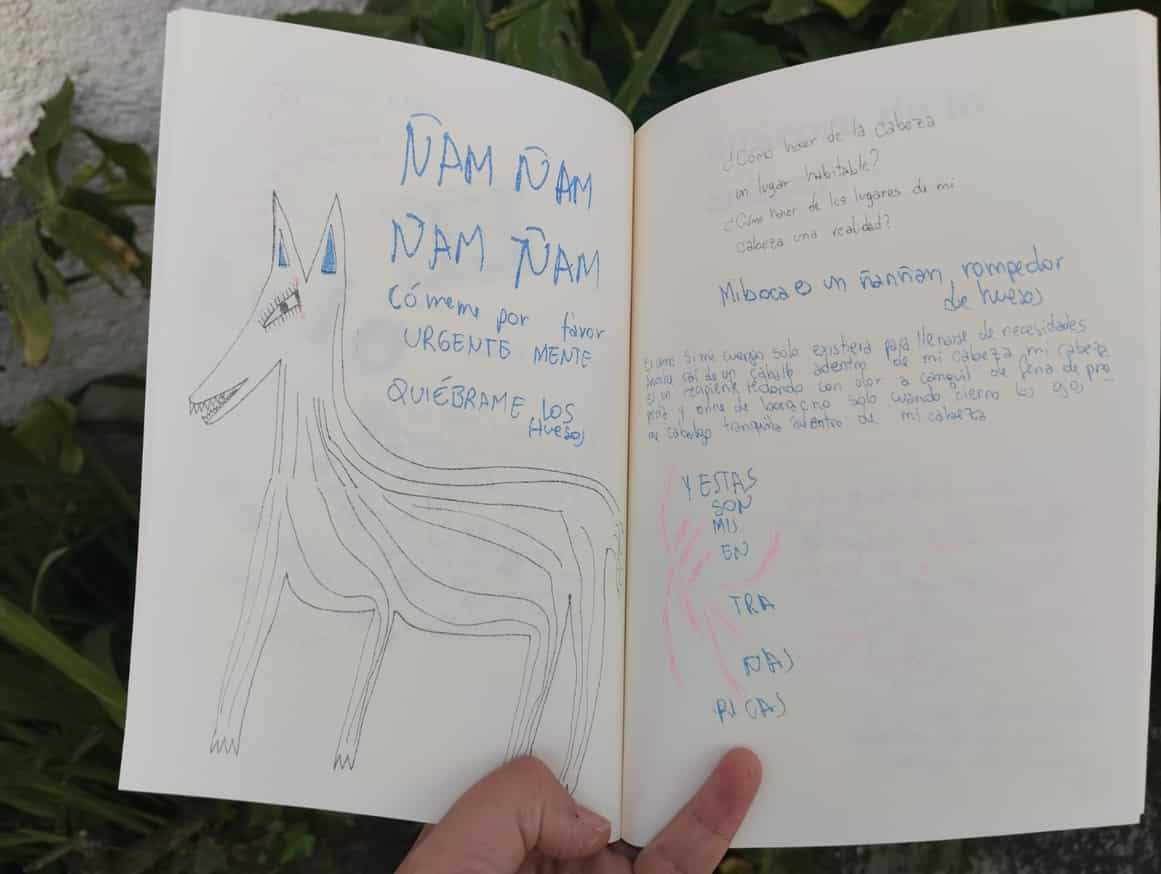 ÑAM ÑAM
ÑAM ÑAM
CÓMEME por favor
URGENTE MENTE
QUIÉBRAME LOS
HUESOS
¿Cómo hacer de la cabeza
un lugar habitable?
¿Cómo hacer de los lugares de mi
cabeza una realidad?
Mi boca es un ñanñam rompedor
de huesos
Es como si mi cuerpo solo existiera para llenarse de necesidades
de un caballo adentro de mi cabeza mi cabeza
es un recipiente redondo con olor a canguil de feria de pro
y orina de borracho solo cuando cierro los ojos
cabalgo tranquila adentro de mi cabeza
Y ESTAS
SON
MIS
EN
TRA
ÑAS
RICAS